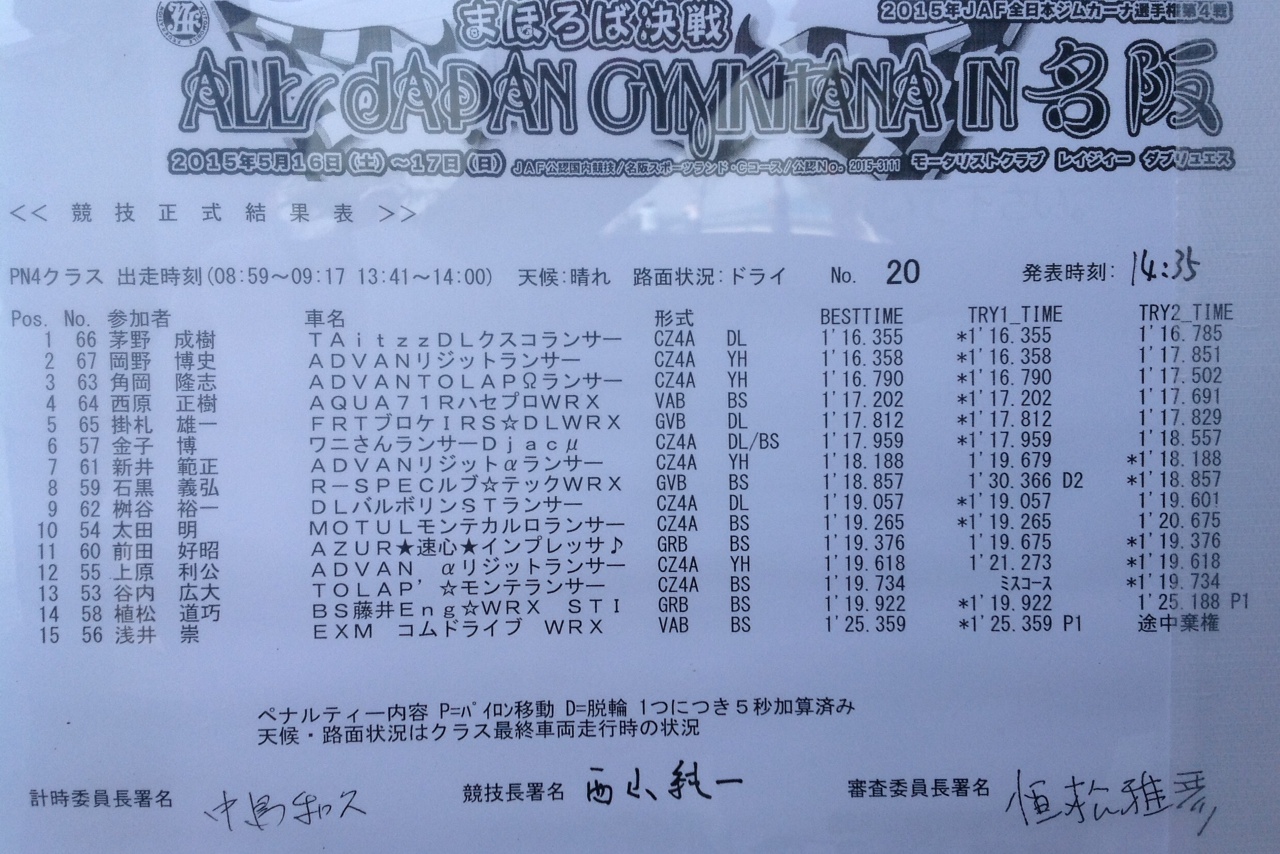 まほろば決戦
2015年JAF全日本ジムカーナ選手権第4戦
ALL JAPAN GYMKHANA IN 名阪
2015年5月16日(土)~17日(日) JAF公認国内競技/名阪スポーツランド・Cコース/公認No. 2015-3111 モータリストクラブ レイジィー ダブリュエス
<< 競技正式結果表 >>
PN4クラス 出走時刻(08:59~09:17 13:41~14:00) 天候:晴れ 路面状況:ドライ No. 20 発表時刻: 14:35
Pos. No. 参加者 車名 形式 BESTTIME TRY1_TIME TRY2_TIME
1 66 茅野 成樹 TAitzzDLクスコランサー CZ4A DL 1'16.355 *1'16.355 1'16.785
2 67 岡野 博史 ADVANリジットランサー CZ4A YH 1'16.358 *1'16.358 1'17.851
3 63 角岡 隆志 ADVANTOLAPΩランサー CZ4A YH 1'16.790 *1'16.790 1'17.502
4 64 西原 正樹 AQUA71RハセプロWRX VAB BS 1'17.202 *1'17.202 1'17.691
5 65 掛札 雄一 FRTブロケIRS☆DLWRX GVB DL 1'17.812 *1'17.812 1'17.829
6 57 金子 博 ワニさんランサーDjacμ CZ4A DL/BS 1'17.959 *1'17.959 1'18.557
7 61 新井 範正 ADVANリジットαランサー CZ4A YH 1'18.188 1'19.679 *1'18.188
8 59 石黒 義弘 R-SPECルブ☆テックWRX GVB BS 1'18.857 1'30.366 D2 *1'18.857
9 62 桝谷 裕一 DLバルボリンSTランサー CZ4A DL 1'19.057 *1'19.057 1'19.601
10 54 太田 明 MOTULモンテカルロランサー CZ4A BS 1'19.265 *1'19.265 1'20.675
11 60 前田 好昭 AZUR★速心★インプレッサ♪ GRB BS 1'19.376 1'19.675 *1'19.376
12 55 上原 利公 ADVAN αリジットランサー CZ4A YH 1'19.618 1'21.273 *1'19.618
13 53 谷内 広大 TOLAP'☆モンテランサー CZ4A BS 1'19.734 ミスコース *1'19.734
14 58 植松 道巧 BS藤井Eng☆WRX STI GRB BS 1'19.922 *1'19.922 1'25.188 P1
15 56 浅井 崇 EXM コムドライブ WRX VAB BS 1'25.359 *1'25.359 P1 途中棄権
ペナルティー内容 P=パイロン移動 D=脱輪 1つにつき5秒加算済み
天候・路面状況はクラス最終車両走行時の状況
計時委員長署名 中島和久 競技長署名 西山純一 審査委員長署名 恒松雅彦